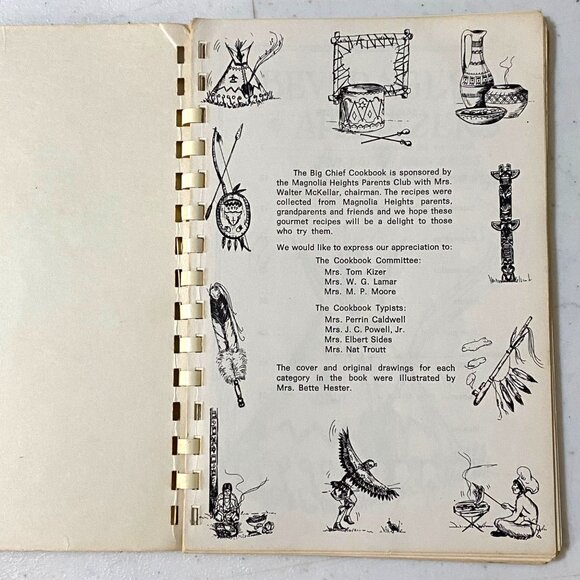 The Big Chief Cookbook is sponsored by
the Magnolia Heights Parents Club with Mrs.
Walter McKellar, chairman. The recipes were
collected from Magnolia Heights parents,
grandparents and friends and we hope these
gourmet recipes will be a delight to those
who try them.
We would like to express our appreciation to:
The Cookbook Committee:
Mrs. Tom Kizer
Mrs. W. G. Lamar
Mrs. M. P. Moore
The Cookbook Typists:
Mrs. Perrin Caldwell
Mrs. J. C. Powell, Jr.
Mrs. Elbert Sides
Mrs. Nat Troutt
The cover and original drawings for each
category in the book were illustrated by
Mrs. Bette Hester.